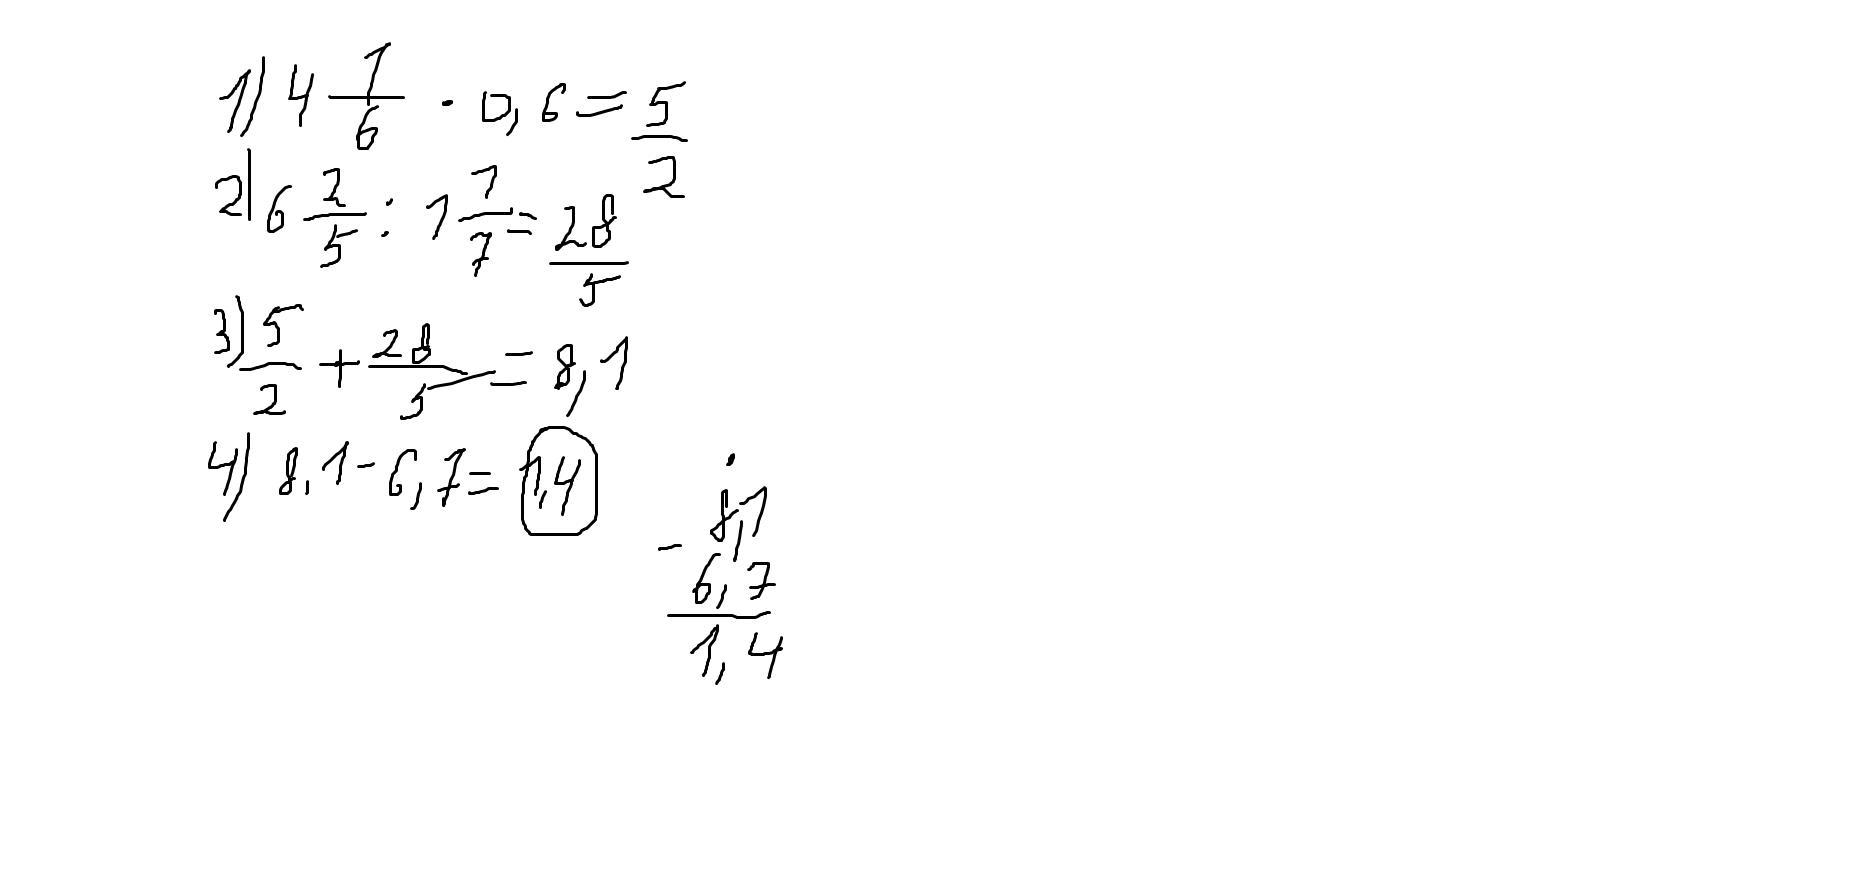 1) 4 1/6 · 0,6 = 5/2
2) 6 2/5 : 1 1/7 = 28/5
3) 5/2 + 28/5 = 8,1
4) 8,1 - 6,7 = 1,4
8,1
- 6,7
1,4